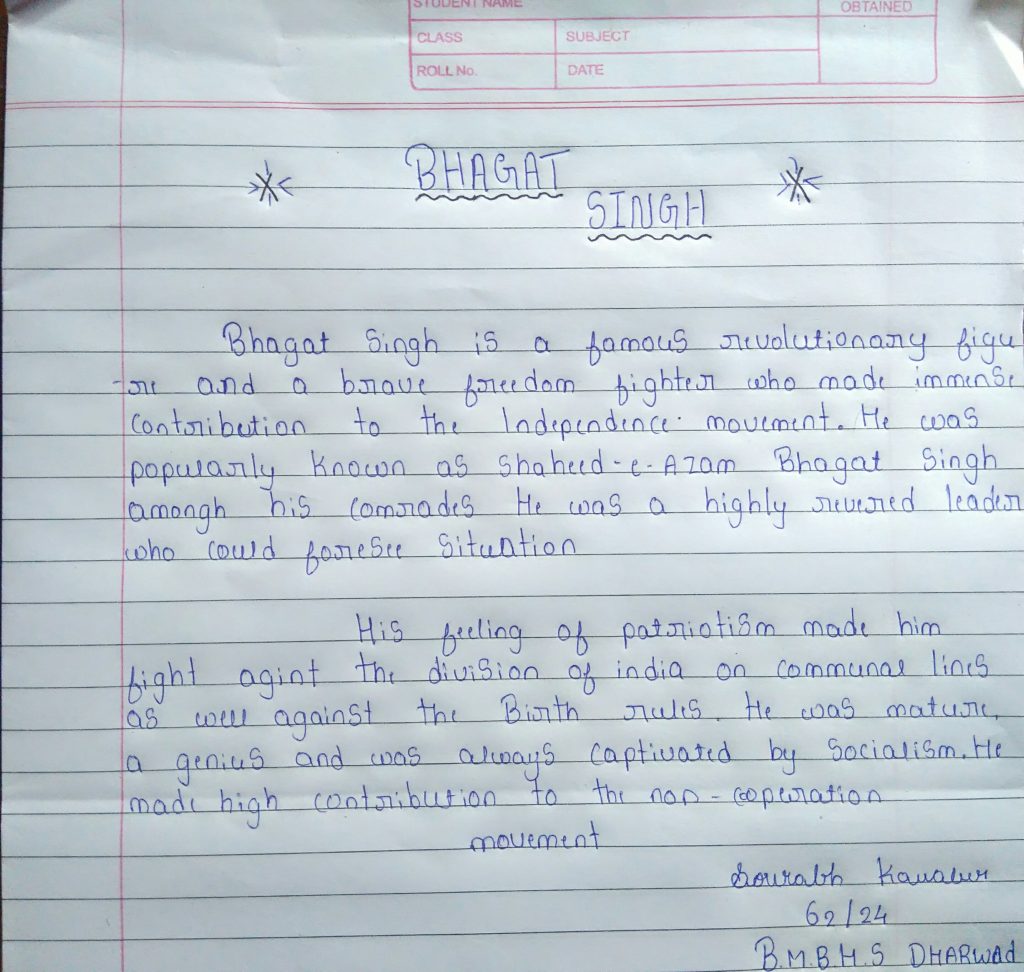 STUDENT NAME
OBTAINED
CLASS
SUBJECT
ROLL No.
DATE
BHAGAT
SINGH
Bhagat Singh is a famous revolutionary figu
-re and a brave freedom fighter who made immense
contribution to the Independence movement. He was
popularly Known as Shaheed-e-Azam Bhagat Singh
amongh his comrades He was a highly revered leader
who could foresee Situation
His feeling of patriotism made him
fight agint the division of india on communal lines
as well against the Birth rules. He was mature,
a genius and was always captivated by Socialism. He
made high contribution to the non-coperation
movement
Sourabh Kavalur
62/24
B.M.B.H.S DHARWAD